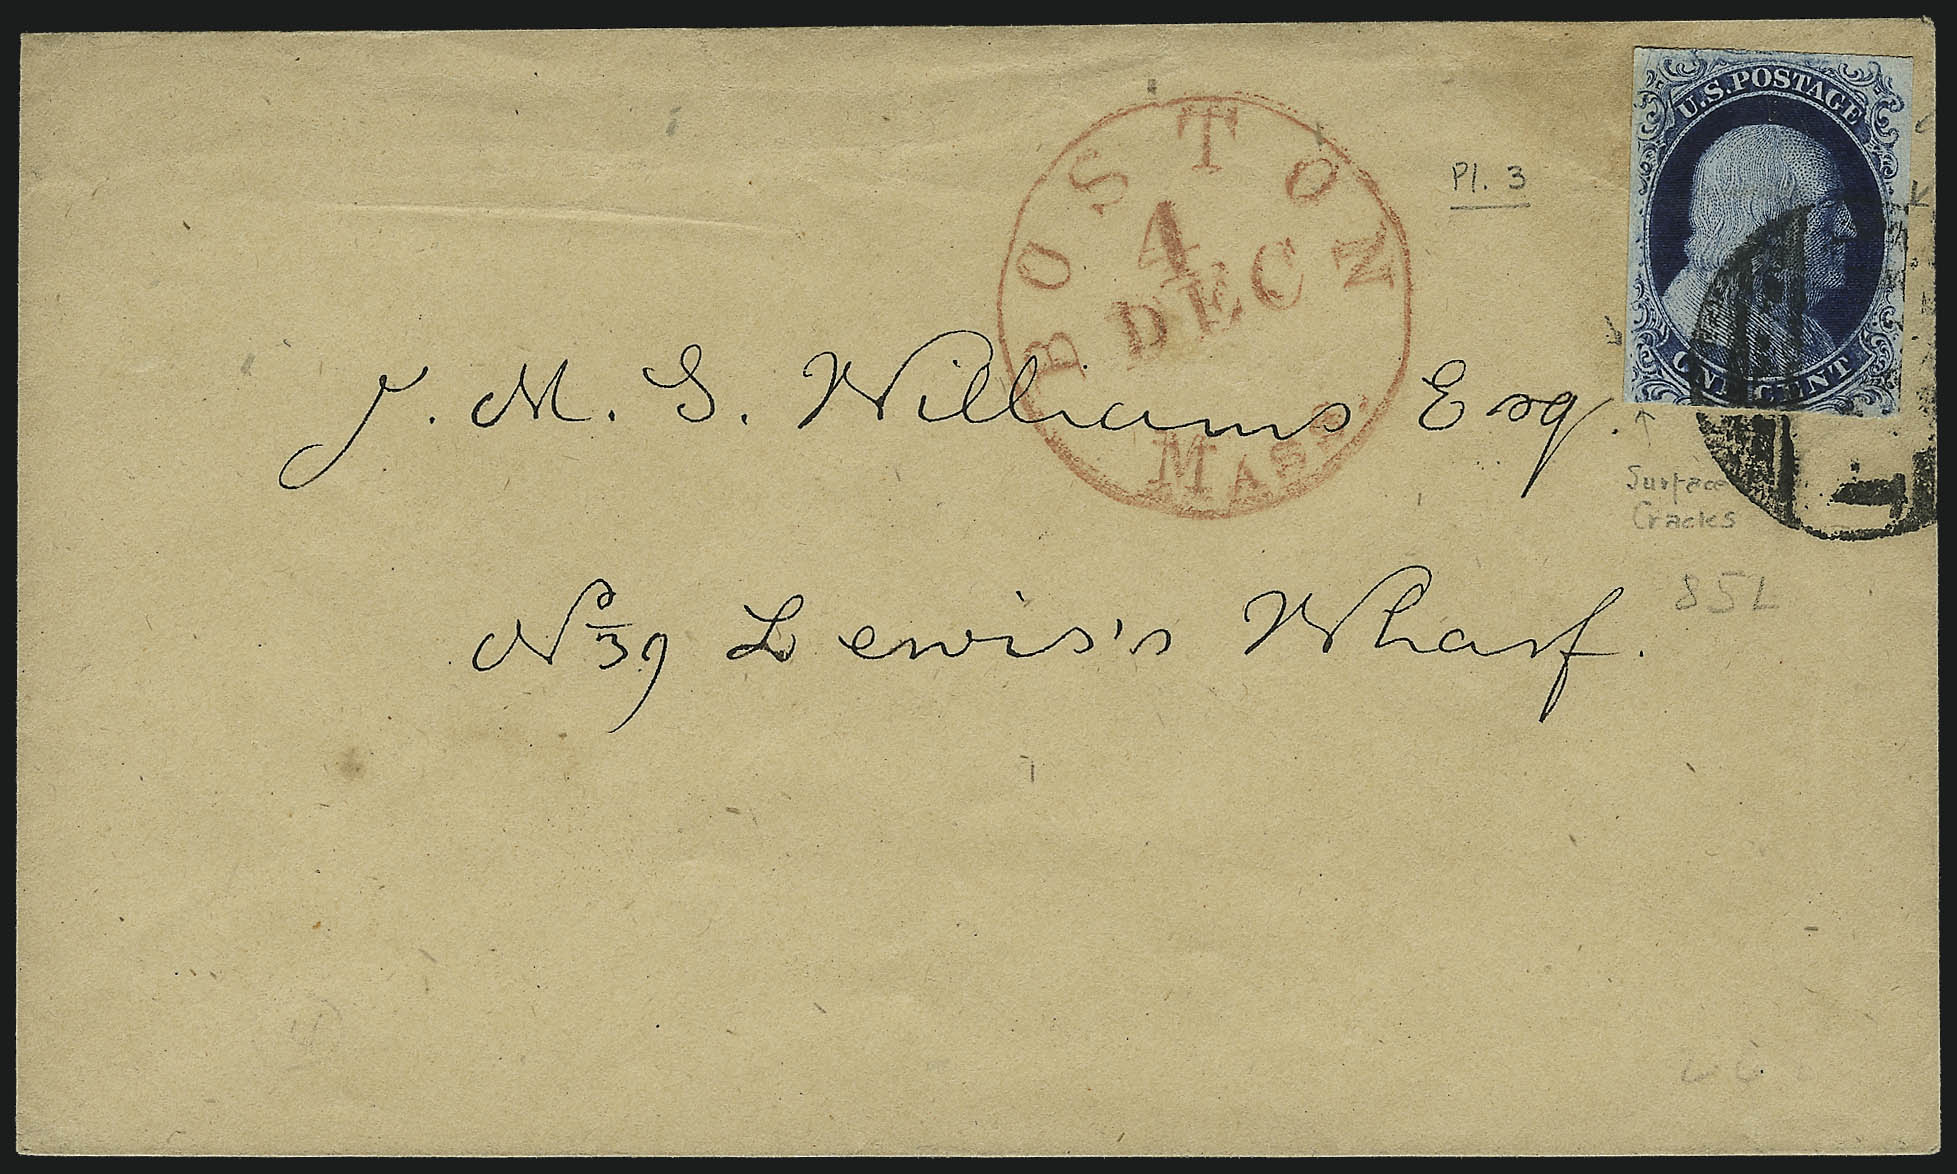 U.S. POSTAGE
ONE CENT
BOSTON
4
DEC
MASS.
Pl. 3
J. M. S. Williams Esq.
Surface
Cracks
85L
No 39 Lewis's Wharf.